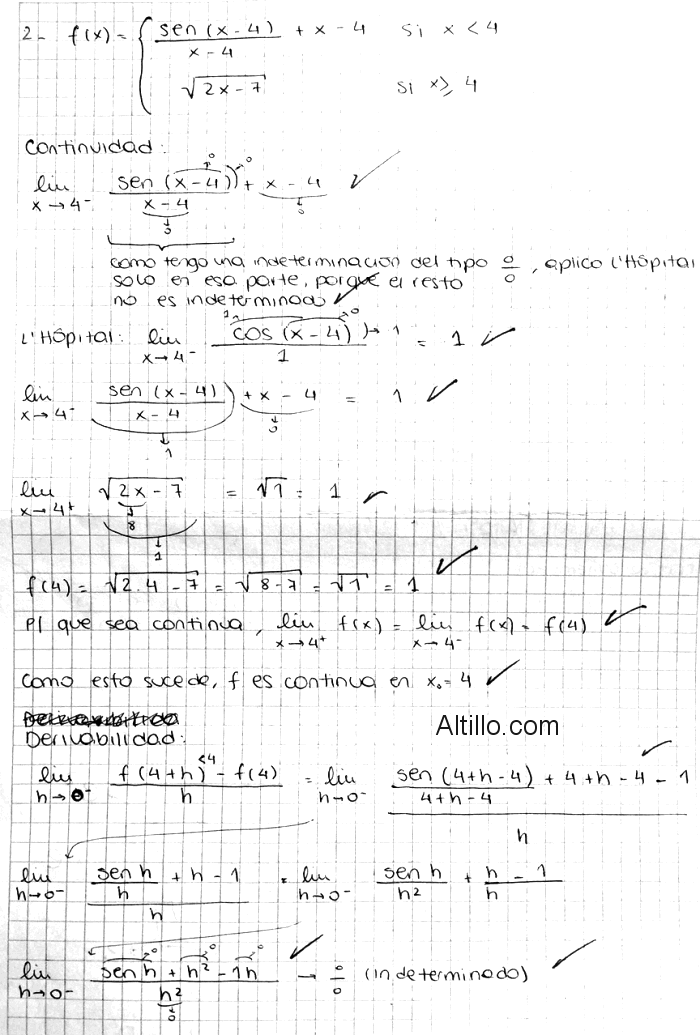 2- f(x) = { sen (x-4) / x-4 + x-4 si x < 4
√2x-7 si x ≥ 4
Continuidad:
lim x→4⁻ sen (x-4) / x-4 + x-4
0 0 0 0
como tengo una indeterminación del tipo 0/0, aplico L'Hôpital
solo en esa parte, porque el resto
no es indeterminado
L'Hôpital: lim x→4⁻ cos (x-4) / 1 → 1 = 1
lim x→4⁻ (sen (x-4) / x-4) + x-4 = 1
1 0
lim x→4⁺ √2x-7 = √1 = 1
8
1
f(4) = √2.4-7 = √8-7 = √1 = 1
P/ que sea continua, lim x→4⁺ f(x) = lim x→4⁻ f(x) = f(4)
Como esto sucede, f es continua en x₀ = 4
Altillo.com
Derivabilidad:
lim h→0⁻ f(4+h) - f(4) / h = lim h→0⁻ sen (4+h-4) / 4+h-4 + 4+h-4-1 / h
<4
lim h→0⁻ sen h / h + h - 1 / h = lim h→0⁻ sen h / h² + h - 1 / h
lim h→0⁻ sen h + h² - 1h / h² → 0/0 (indeterminado)
0 0 0 0